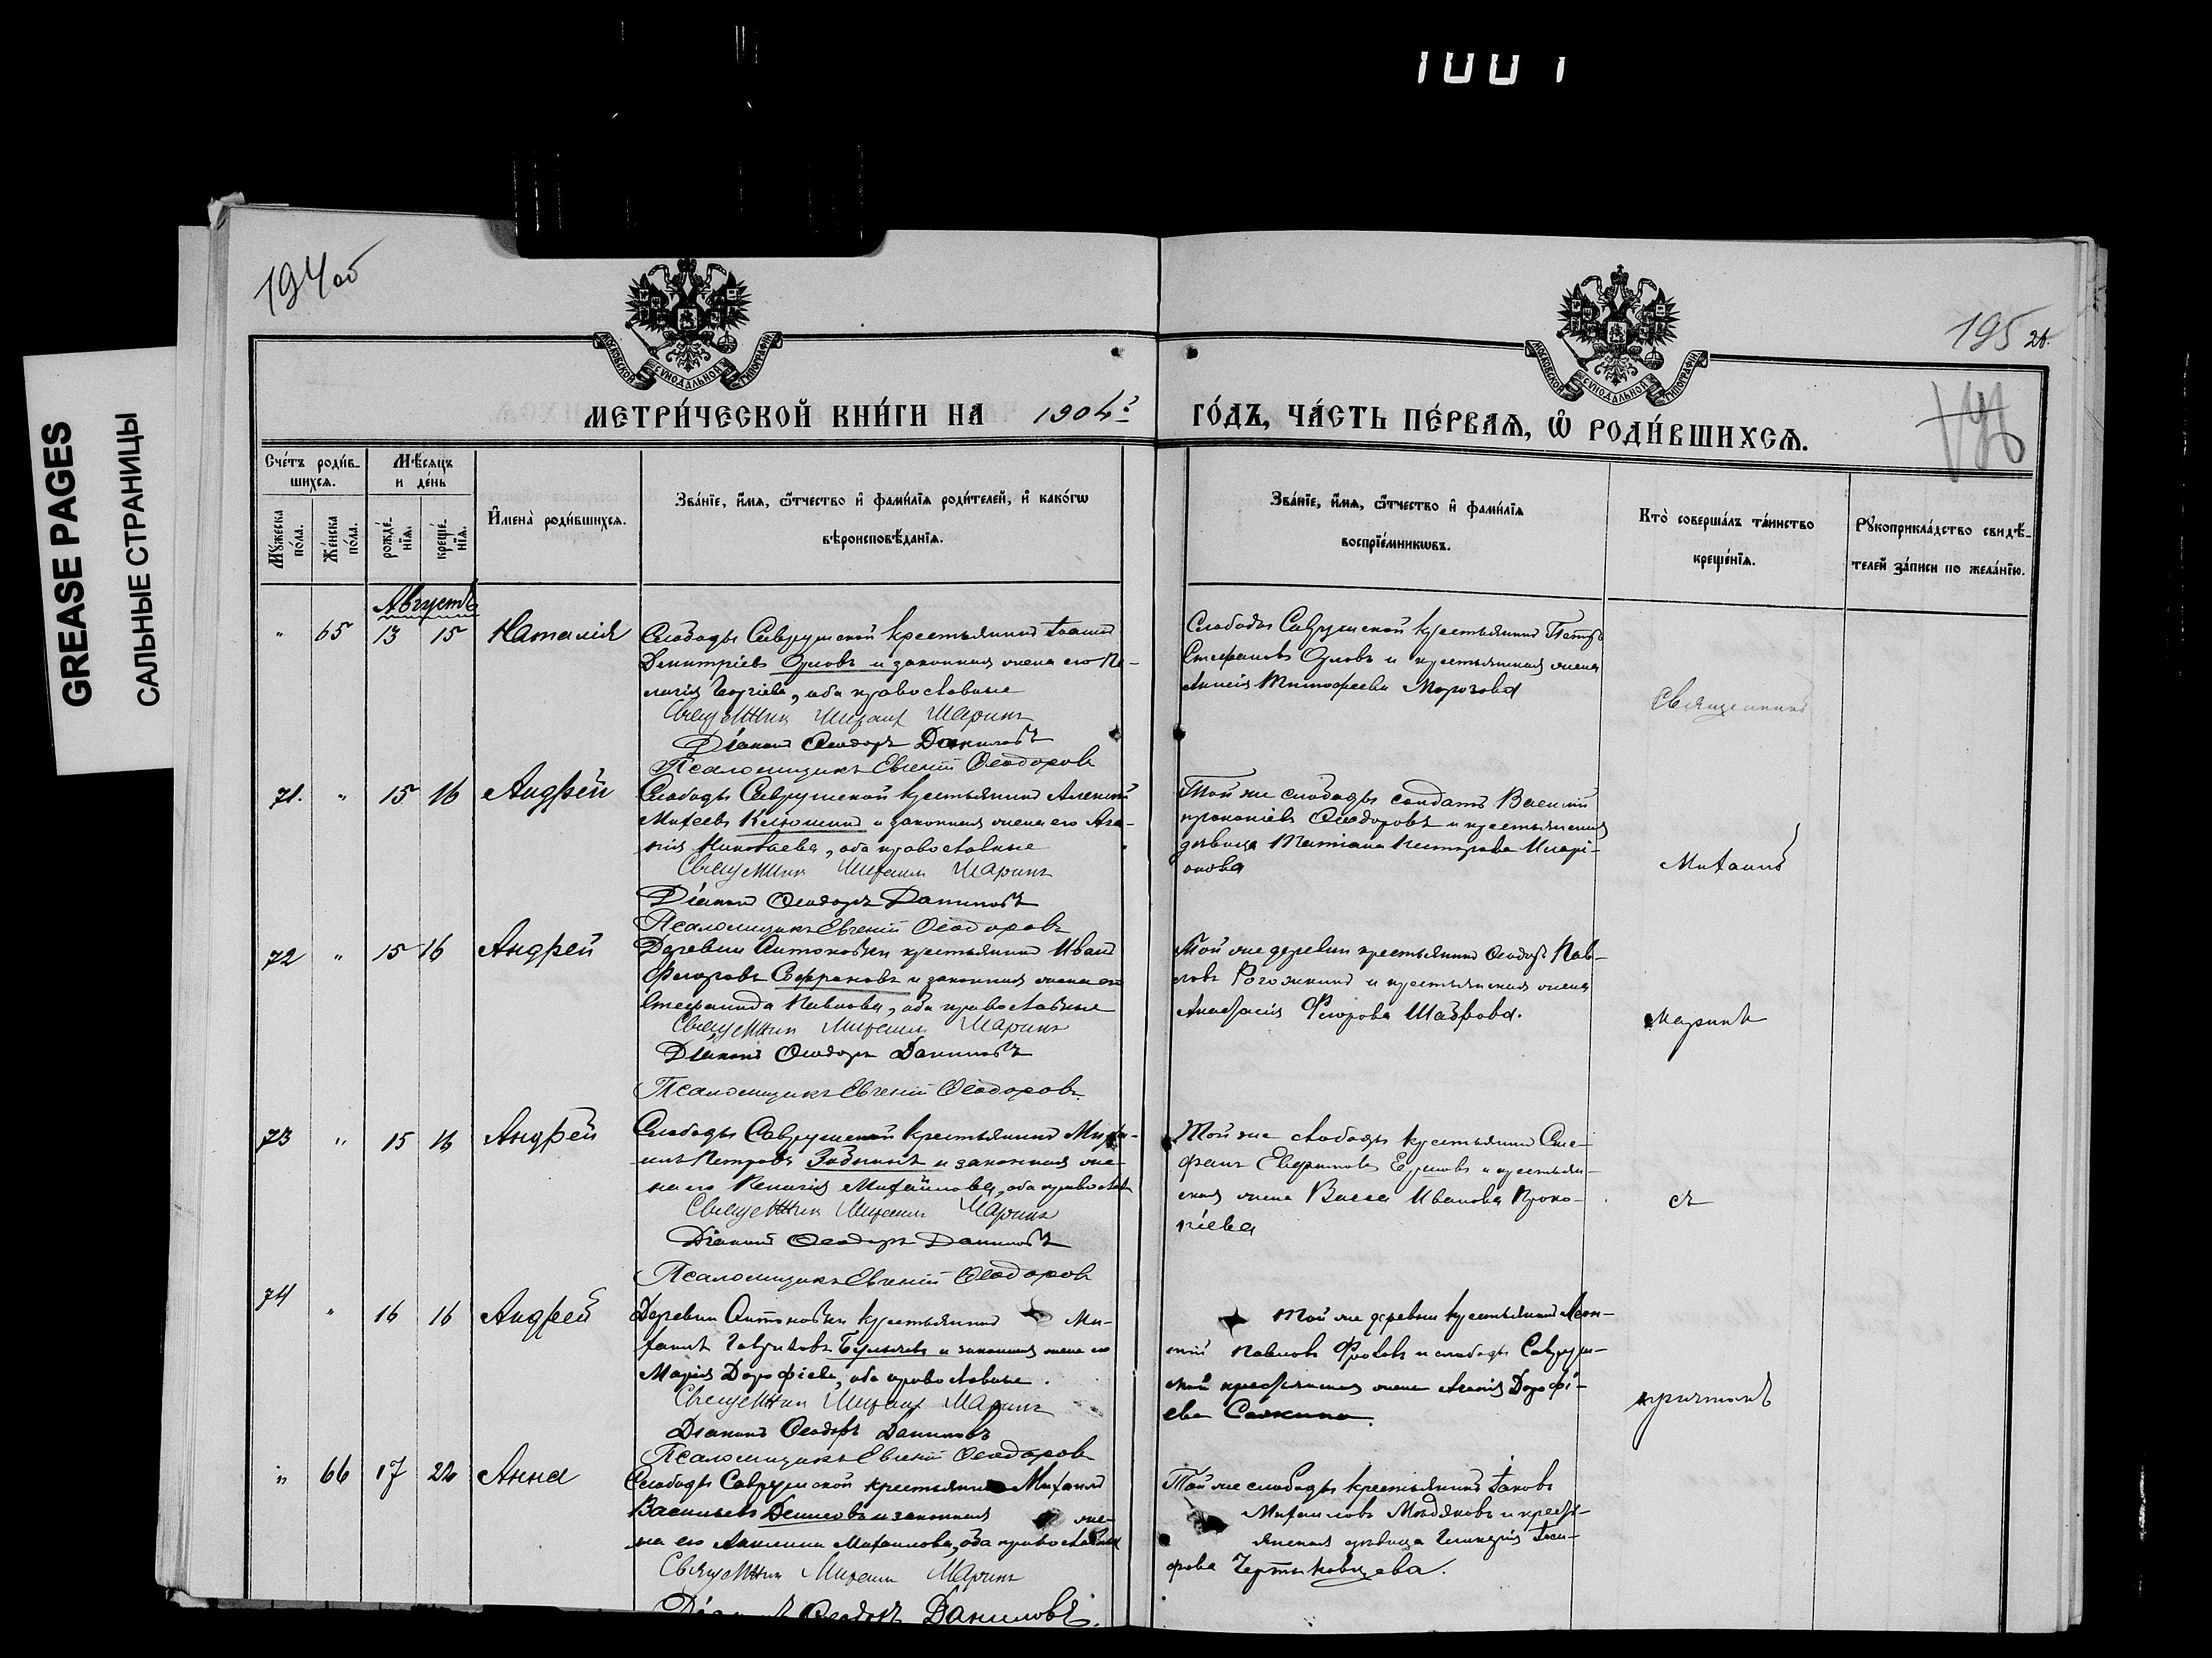 1001
GREASE PAGES
САЛЬНЫЕ СТРАНИЦЫ
194 об
195
МОСКОВСКОЙ СѴНОДАЛЬНОЙ ТИПОГРАФІИ
МОСКОВСКОЙ СѴНОДАЛЬНОЙ ТИПОГРАФІИ
МЕТРИ́ЧЕСКОЙ КНИ́ГИ НА 1904 г ГО́ДЪ, ЧА́СТЬ ПЕ́РВАѦ, Ѡ҆ РОДИ́ВШИХСѦ.
Сче́тъ роди́в-
шихсѧ.
Мѣ́сѧцъ
и де́нь
Мꙋжеска
по́ла.
Же́нска
по́ла.
рожде́-
нїѧ.
креще́-
нїѧ.
И҆мена̀ роди́вшихсѧ.
Зва́нїе, и҆́мѧ, ѻ҆́тчество и҆ фами́лїѧ роди́телей, и҆ како́гѡ
вѣроисповѣ́данїѧ.
Зва́нїе, и҆́мѧ, ѻ҆́тчество и҆ фами́лїѧ
воспрїе́мникѡвъ.
Кто̀ соверша́лъ та́инство
креще́нїѧ.
Рꙋкоприкла́дство свидѣ́-
телей за́писи по жела́нїю.
Августъ
" 65 13 15 Наталія
Слободы Саврушской крестьянинъ Іоаннъ
Димитріевъ Орловъ и законная жена его Пе-
лагія Георгіева, оба православные
Священникъ Михаилъ Маринъ
Діаконъ Ѳеодоръ Даниловъ
Псаломщикъ Евгеній Ѳеодоровъ
Слободы Саврушской крестьянинъ Петръ
Стефановъ Орловъ и крестьянская жена
Анисія Тимофеева Морозова
Священникъ
71. " 15 16 Андрей
Слободы Саврушской крестьянинъ Алексій
Михеевъ Клюшинъ и законная жена его Ага-
пія Николаева, оба православные
Священникъ Михаилъ Маринъ
Діаконъ Ѳеодоръ Даниловъ
Псаломщикъ Евгеній Ѳеодоровъ
Той же слободы солдатъ Василій
Прокопіевъ Ѳеодоровъ и крестьянская
дѣвица Татіана Петрова Иларі-
онова
Михаилъ
72 " 15 16 Андрей
Деревни Антоновки крестьянинъ Иванъ
Флоровъ Софроновъ и законная жена его
Стефанида Павлова, оба православные
Священникъ Михаилъ Маринъ
Діаконъ Ѳеодоръ Даниловъ
Псаломщикъ Евгеній Ѳеодоровъ
Той же деревни крестьянинъ Ѳеодоръ Пав-
ловъ Рогожкинъ и крестьянская жена
Анастасія Флорова Шаврова.
Маринъ
73 " 15 16 Андрей
Слободы Саврушской крестьянинъ Миха-
илъ Петровъ и законная же-
на его Пелагія Михайлова, оба православ
Священникъ Михаилъ Маринъ
Діаконъ Ѳеодоръ Даниловъ
Псаломщикъ Евгеній Ѳеодоровъ
Той же слободы крестьянинъ Сте-
фанъ Ершовъ и крестьян-
ская жена Васса Иванова Проко-
піева
съ
74 " 16 16 Андрей
Деревни Антоновки крестьянинъ Ми-
хаилъ Гавриловъ Булычевъ и законная жена его
Марія Дорофіева, оба православные.
Священникъ Михаилъ Маринъ
Діаконъ Ѳеодоръ Даниловъ
Псаломщикъ Евгеній Ѳеодоровъ
Той же деревни крестьянинъ
Павловъ Фроловъ и слободы Савруш-
ской крестьянская жена Агапія Дорофі-
ева
причтомъ
" 66 17 22 Анна
Слободы Саврушской крестьянинъ Михаилъ
Васильевъ Денисовъ и законная же-
на его Акилина Михаилова, оба православные
Священникъ Михаилъ Маринъ
Діаконъ Ѳеодоръ Даниловъ.
Той же слободы крестьянинъ Іаковъ
Михаиловъ Молдяковъ и кресть-
янская дѣвица Гликерія Іоси-
фова Чертыковцева.